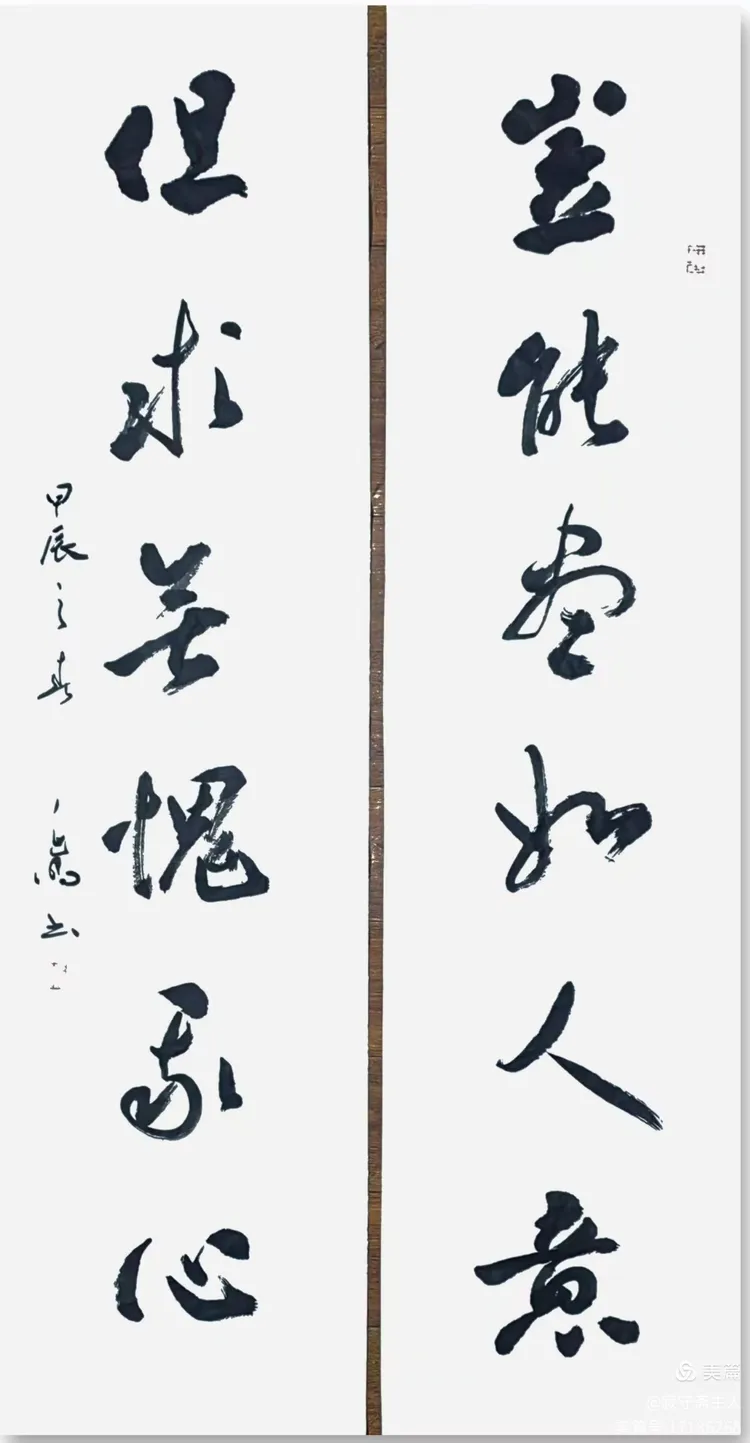 豈能盡如人意
但求無愧我心
甲辰之春
書
美篇